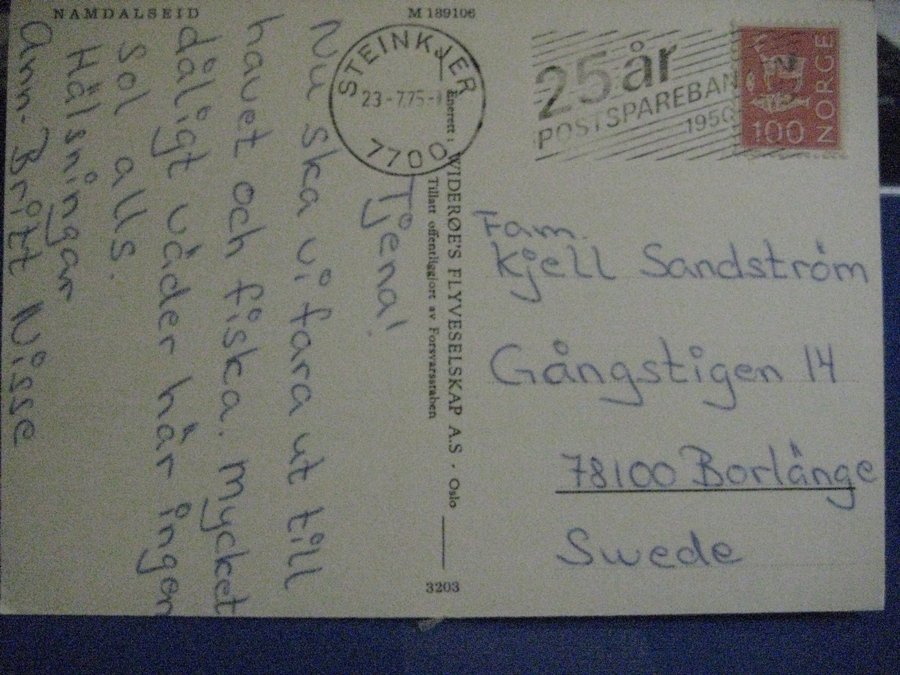 NAMDALSEID
M 189106
Tjena!
Nu ska vi fara ut till
havet och fiska. Mycket
dåligt väder här ingen
sol alls.
Hälsningar
Ann-Britt Nisse
STEINKJER
23-7.75-
7700
25 år
POSTSPAREBAN
1950
NORGE
100
Enerett: WIDERØE'S FLYVESELSKAP A.S · Oslo
Tillatt offentliggjort av Forsvarsstaben
3203
Fam.
Kjell Sandström
Gångstigen 14
78100 Borlänge
Swede